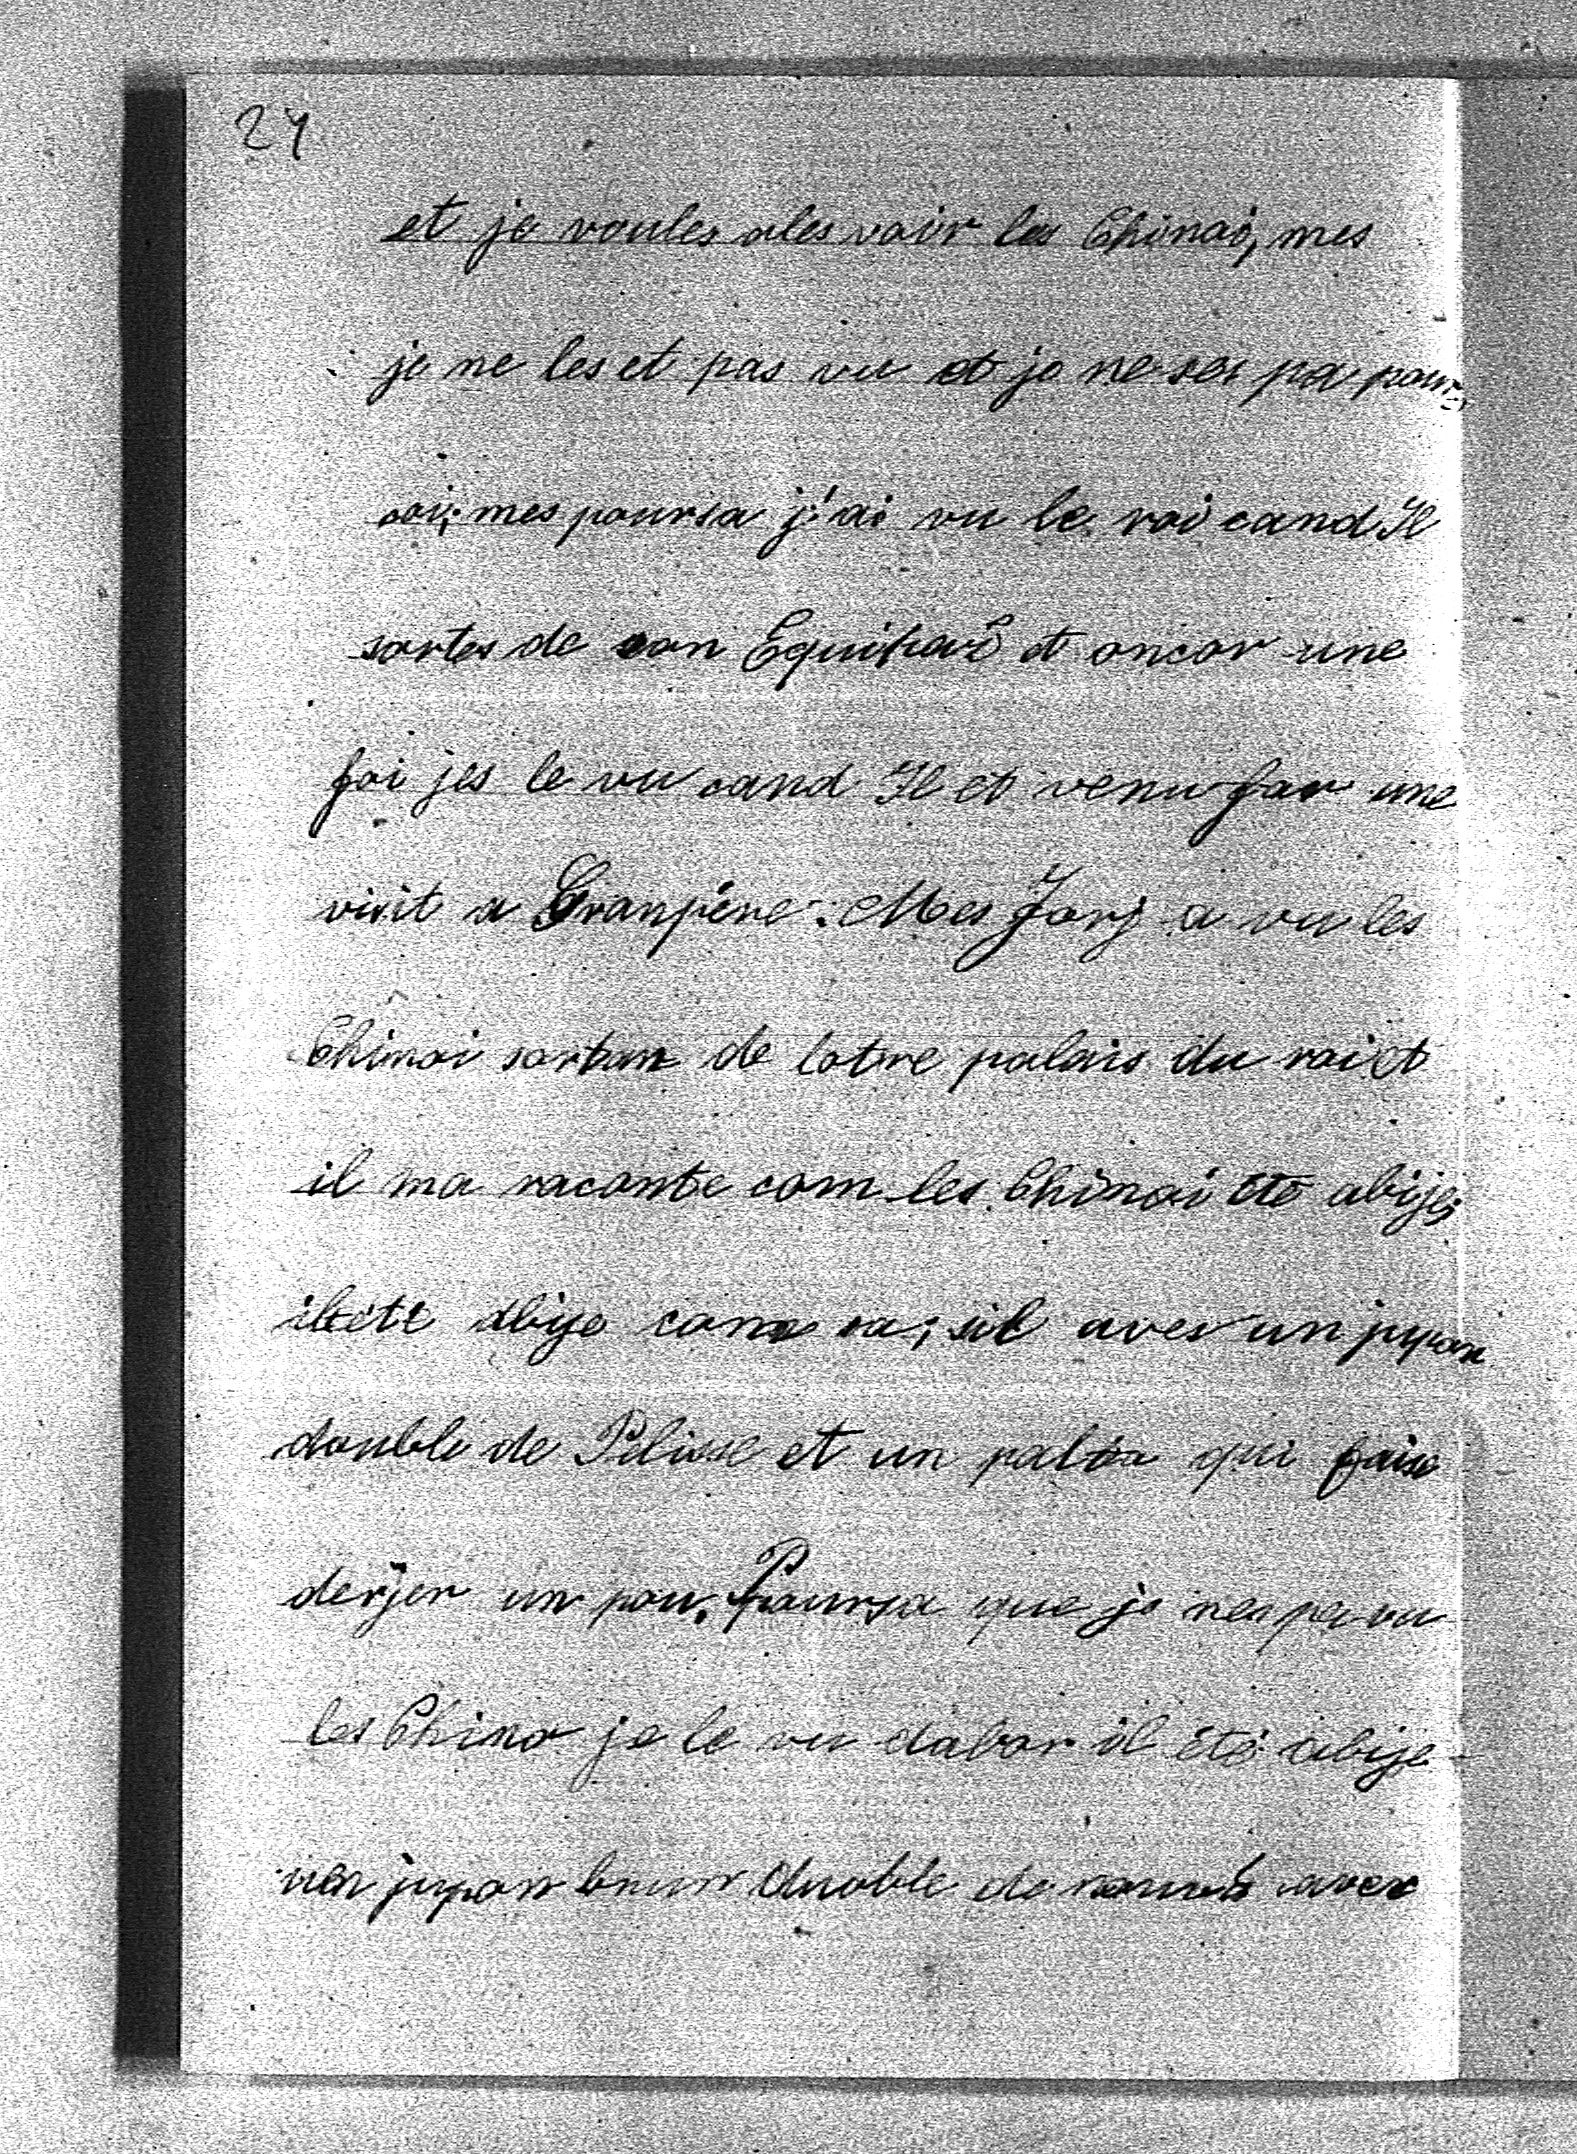 27
et je voules ales voir les Chinoi, mes
je ne les et pas vu et je ne ses pa pour,
coi; mes poursa j'ai vu le roi cand Il
sortes de son Equipai et oncor une
foi jes le vu cand Il et venu far une
visit a Granpère. Mes Jorj a vu les
Chinoi sortan de lotre palais du roi et
il ma raconte com les Chinoi étè abije;
il été abije com sa; il aves un jupon
double de Pelisse et un palto qui
un pou. Poursa que je nes pa vu
les Chino je le vu dabor il étè abije
un jupon brun duoble de avec